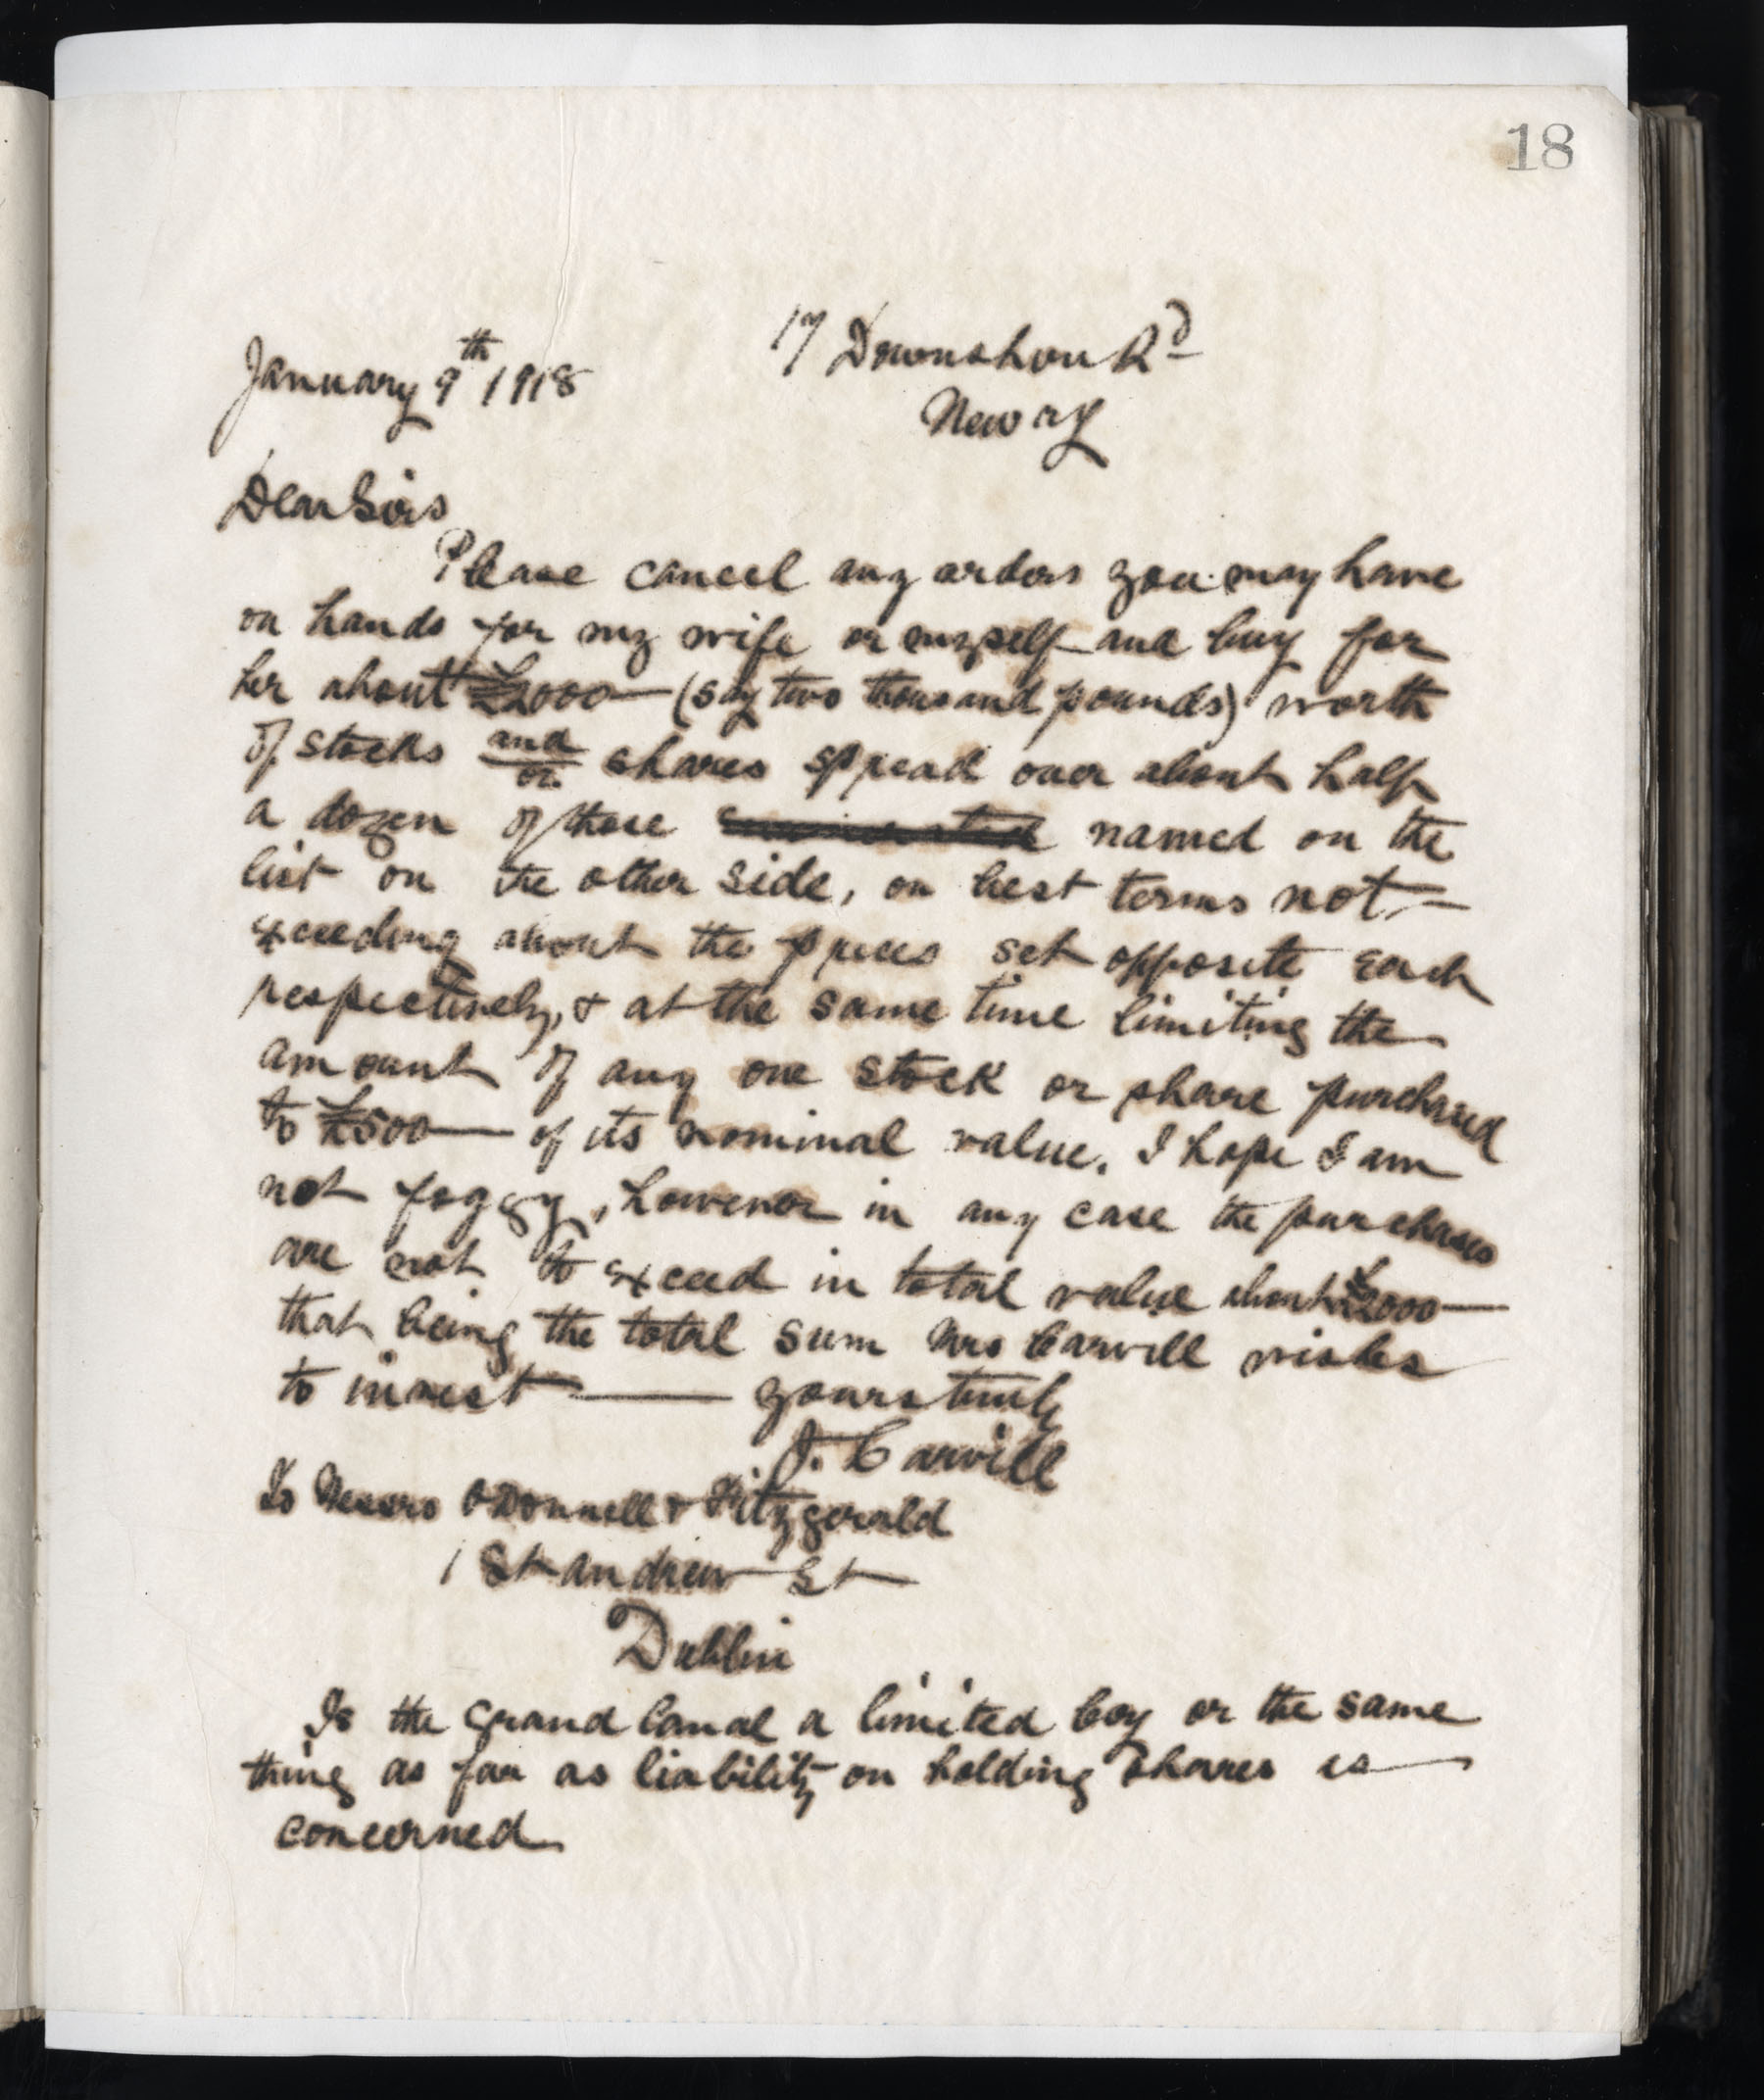 18
17 Downshire Rd
January 9th 1918
Newry
Dear Sirs
Please cancel any orders you may have
on hands for my wife or myself and buy for
her about £2000 — (say two thousand pounds) worth
of stocks and/or shares spread over about half
a dozen of those named on the
list on the other side, on best terms not —
exceeding about the prices set opposite each
respectively, & at the same time limiting the
amount of any one stock or share purchased
to £500 — of its nominal value. I hope I am
not foggy, however in any case the purchases
are not to exceed in total value about £2000 —
that being the total sum Mrs Carvill wishes
to invest — yours truly
J. Carvill
To Messrs O'Donnell & Fitzgerald
1 St Andrew St
Dublin
Is the Grand Canal a limited Coy or the same
thing as far as liability on holding shares is —
concerned